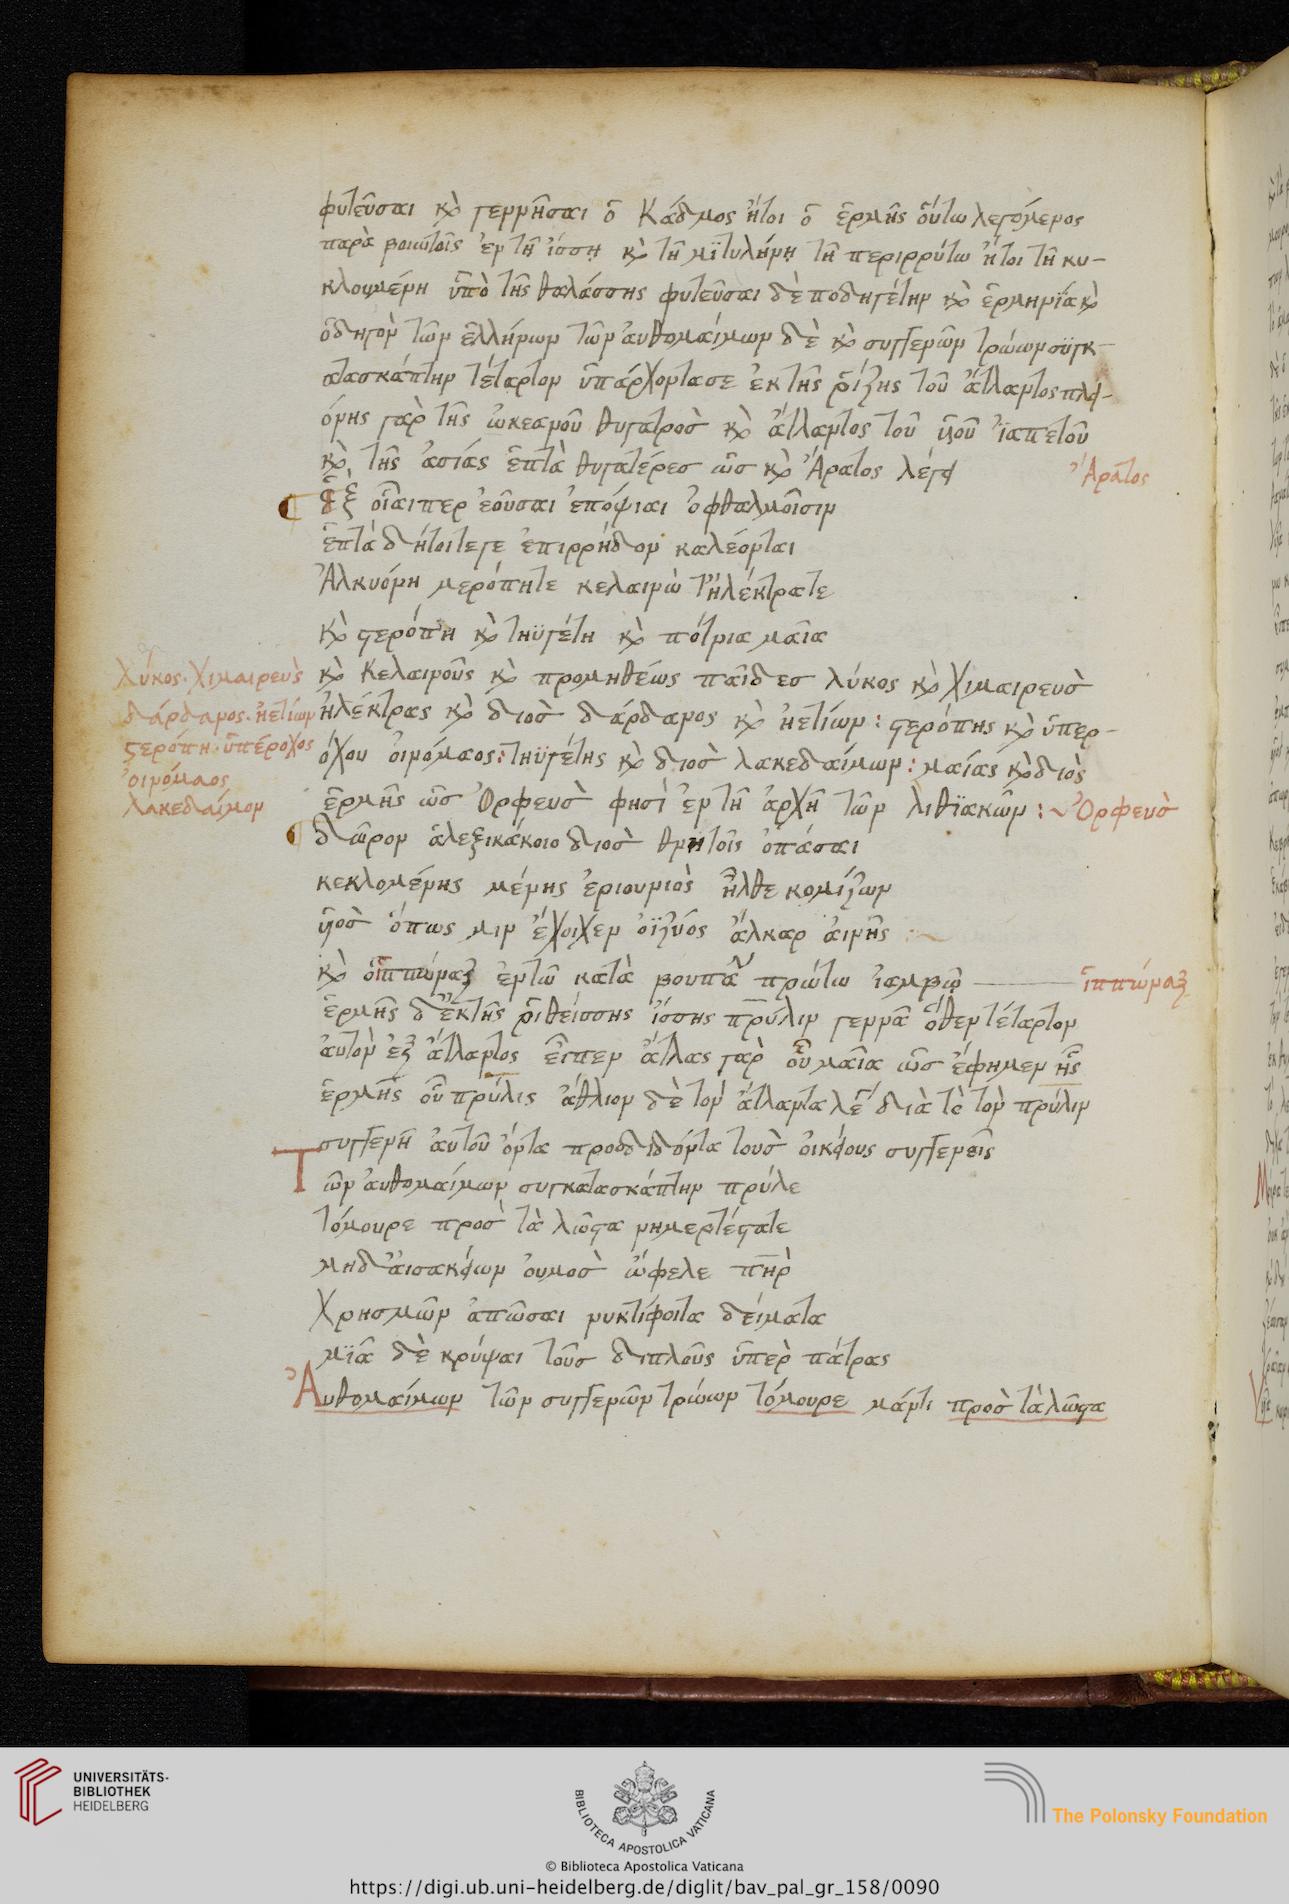 φυτεῦσαι καὶ γεννῆσαι ὁ Κάδμος ἤτοι ὁ ἑρμῆς οὕτω λεγόμενος
παρὰ βοιωτοῖς ἐν τῆ ἴσση καὶ τῆ μϊτυλήνη τῆ περιρρύτω ἤτοι τῆ κυ-
κλουμένη ὑπὸ τῆς θαλάσσης φυτεῦσαι δὲ ποδηγέτην καὶ ἑρμηνέα καὶ
ὁδηγὸν τῶν ἑλλήνων τῶν αὐθομαίμων δὲ καὶ συγγενῶν τρώων συγκ-
ατασκάπτην τέταρτον ὑπάρχοντα σε ἐκ τῆς ῥίζης τοῦ ἄτλαντος πλει-
όνης γὰρ τῆς ὠκεανοῦ θυγατρὸς καὶ ἄτλαντος τοῦ υἱοῦ ἰαπετοῦ
καὶ τῆς ἀσίας ἑπτὰ θυγατέρες ὡς καὶ Ἄρατος λέγει
Ἄρατος
ἓξ οἷαίπερ ἐοῦσαι ἐπόψιαι ὀφθαλμοῖσιν
ἑπτὰ δἤτοι τεγε ἐπιρρήδον καλέονται
Ἀλκυόνη μερόπητε κελαινὼ τ'ἠλέκτρατε
καὶ στερόπη καὶ τηϋγέτη καὶ πότνια μαῖα
λύκος. χιμαιρεὺς
δάρδανος. ἠετίων
στερόπη. ὑπέροχος
οἰνόμαος
λακεδαίμον
καὶ Κελαινοῦς καὶ προμηθέως παῖδες λύκος καὶ χιμαιρεὺς
ἠλέκτρας καὶ διὸς δάρδανος καὶ ἠετίων: στερόπης καὶ ὑπερ-
όχου οἰνόμαος: τηϋγέτης καὶ διὸς λακεδαίμων: μαίας καὶ διὸς
ἑρμῆς ὡς Ὀρφεὺς φησὶ ἐν τῆ ἀρχῆ τῶν λιθϊακῶν:~
Ὀρφεὺς
δῶρον ἀλεξικάκοιο διὸς θνητοῖς ὀπάσαι
κεκλομένης μένης ἐριουνιὸς ἦλθε κομίζων
υἱὸς ὅπως μιν ἔχοιχεν οἰζύος ἄλκαρ αἰνῆς:~
καὶ ὁ ἱππώναξ ἐν τῶ κατὰ βουπάλου πρώτω ἰαμβῶ
ἱππώναξ
ἑρμῆς δ'ἐκ τῆς ῥιθείσσης ἴσσης πρύλιν γεννᾶ ὅθεν τέταρτον
αὐτὸν ἐξ ἄτλαντος εἶπεν ἄτλας γὰρ οὗ μαῖα ὡς ἔφημεν ἧς
ἑρμῆς οὗ πρύλις ἄθλιον δὲ τὸν ἄτλαντα λέγει διὰ τὸ τὸν πρύλιν
συγγενῆ αὐτοῦ ὄντα προδιδόντα τοὺς οἰκείους συγγενεῖς
Τῶν αὐθομαίμων συγκατασκάπτην πρύλε
τόμουρε πρὸς τὰ λῶστα νημερτέστατε
μηδ'αἰσακείων οὑμὸς ὤφελε πηρ
χρησμῶν ἀπῶσαι νυκτίφοιτα δείματα
μϊᾶ δὲ κρύψαι τοὺς διπλοῦς ὑπὲρ πάτρας
Αὐθομαίμων τῶν συγγενῶν τρώων τόμουρε μάντι πρὸς τὰ λῶστα
UNIVERSITÄTS-
BIBLIOTHEK
HEIDELBERG
BIBLIOTECA APOSTOLICA VATICANA
The Polonsky Foundation
© Biblioteca Apostolica Vaticana
https://digi.ub.uni-heidelberg.de/diglit/bav_pal_gr_158/0090